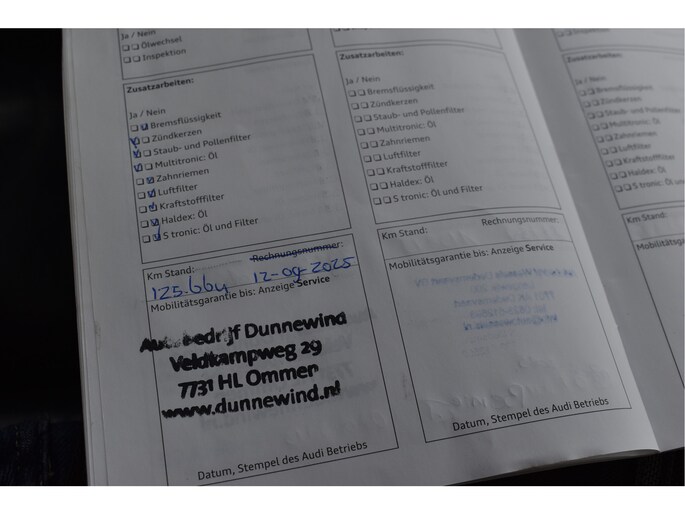 Ja / Nein
Ölwechsel
Inspektion
Zusatzarbeiten:
Ja / Nein
Bremsflüssigkeit
Zündkerzen
Staub- und Pollenfilter
Multitronic: Öl
Zahnriemen
Luftfilter
Kraftstofffilter
Haldex: Öl
S tronic: Öl und Filter
Km Stand: Rechnungsnummer:
125.664 12-09-2025
Mobilitätsgarantie bis: Anzeige Service
Autobedrijf Dunnewind
Veldkampweg 29
7731 HL Ommen
www.dunnewind.nl
Datum, Stempel des Audi Betriebs
Ja / Nein
Ölwechsel
Inspektion
Zusatzarbeiten:
Ja / Nein
Bremsflüssigkeit
Zündkerzen
Staub- und Pollenfilter
Multitronic: Öl
Zahnriemen
Luftfilter
Kraftstofffilter
Haldex: Öl
S tronic: Öl und Filter
Km Stand: Rechnungsnummer:
Mobilitätsgarantie bis: Anzeige Service
Datum, Stempel des Audi Betriebs
Inspektion
Zusatzarbeiten:
Ja / Nein
Bremsflüssigkeit
Zündkerzen
Staub- und Pollenfilter
Multitronic: Öl
Zahnriemen
Luftfilter
Kraftstofffilter
Haldex: Öl
S tronic: Öl und
Km Stand:
Mobilitätsgarantie